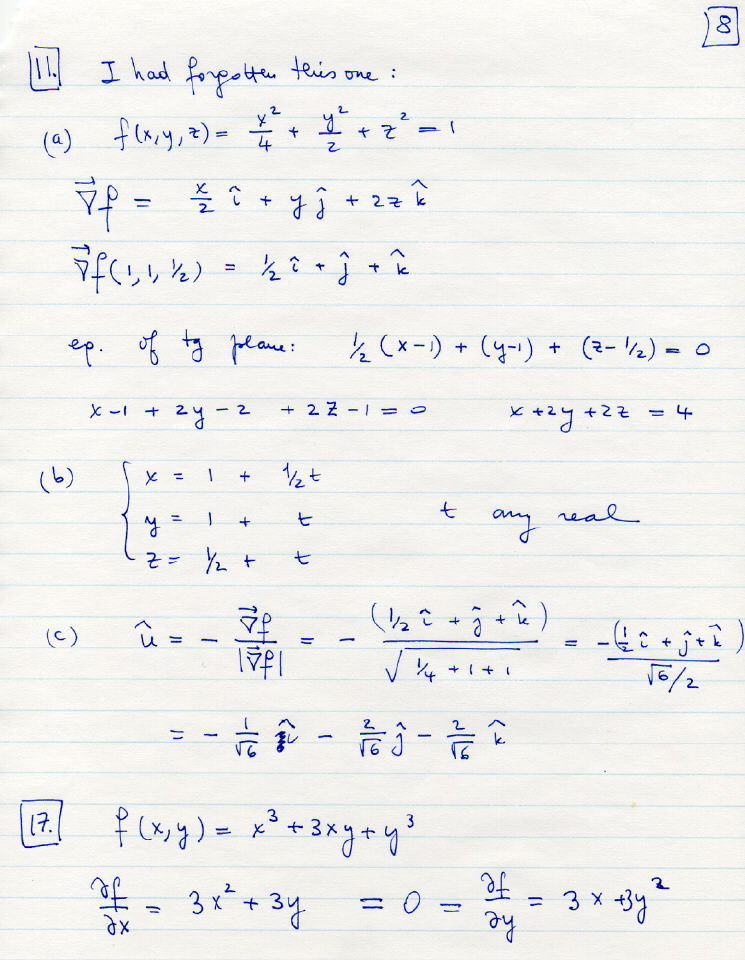 8
11. I had forgotten this one:
(a) f(x,y,z) = x²/4 + y²/2 + z² = 1
∇⃗f = x/2 î + y ĵ + 2z k̂
∇⃗f(1,1,1/2) = 1/2 î + ĵ + k̂
ep. of tg plane: 1/2 (x-1) + (y-1) + (z-1/2) = 0
x-1 + 2y-2 + 2z-1 = 0 x+2y+2z = 4
(b) { x = 1 + 1/2 t
y = 1 + t t any real
z = 1/2 + t
(c) û = - ∇⃗f/|∇⃗f| = - (1/2 î + ĵ + k̂)/√(1/4 + 1 + 1) = -(1/2 î + ĵ + k̂)/(√6/2)
= - 1/√6 î - 2/√6 ĵ - 2/√6 k̂
17. f(x,y) = x³ + 3xy + y³
∂f/∂x = 3x² + 3y = 0 = ∂f/∂y = 3x + 3y²